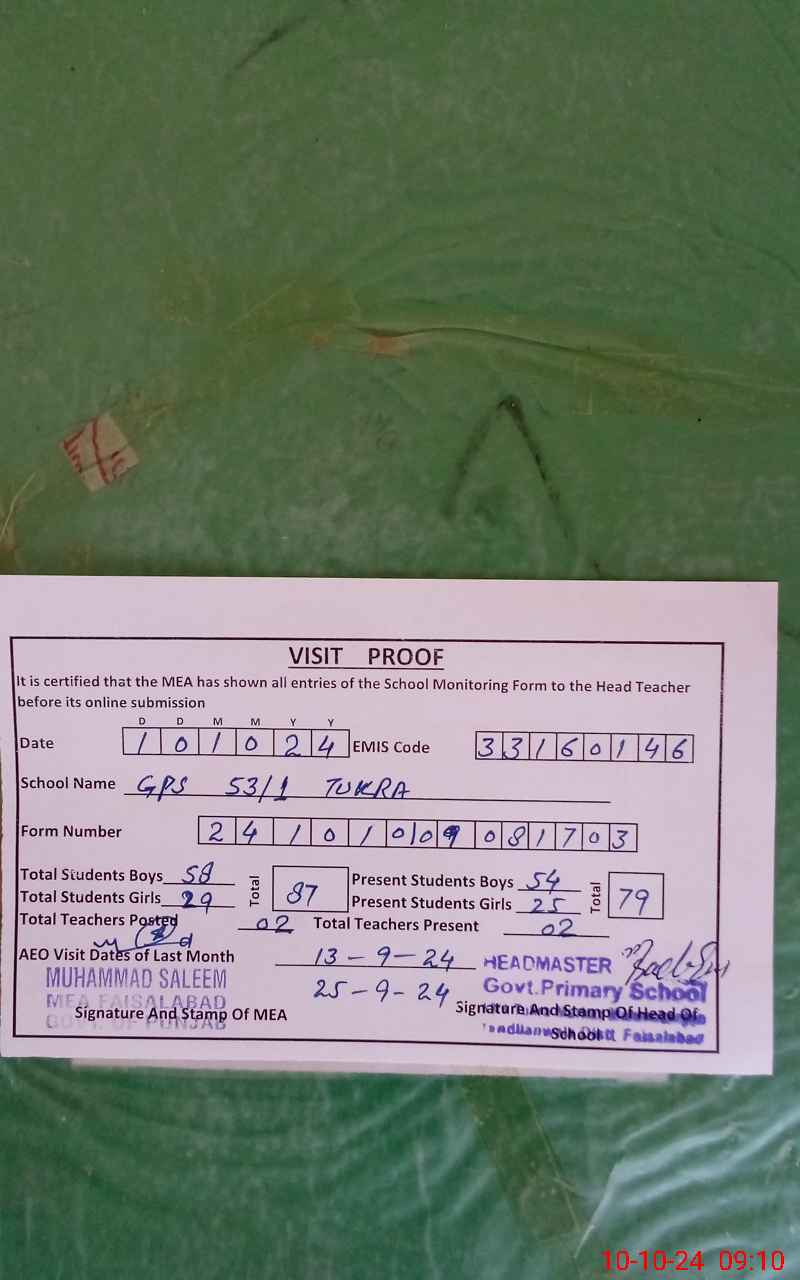 VISIT PROOF
It is certified that the MEA has shown all entries of the School Monitoring Form to the Head Teacher
before its online submission
D D M M Y Y
Date 1 0 1 0 2 4 EMIS Code 3 3 1 6 0 1 4 6
School Name GPS 53/1 TUKRA
Form Number 2 4 1 0 1 0 0 9 0 8 1 7 0 3
Total Students Boys 58 Total 87 Present Students Boys 54 Total 79
Total Students Girls 29 Present Students Girls 25
Total Teachers Posted 02 Total Teachers Present 02
AEO Visit Dates of Last Month 13-9-24
25-9-24
MUHAMMAD SALEEM
MEA FAISALABAD
GOVT. OF PUNJAB
Signature And Stamp Of MEA
HEADMASTER
Govt.Primary School
Signature And Stamp Of Head Of
School
Faisalabad
10-10-24 09:10